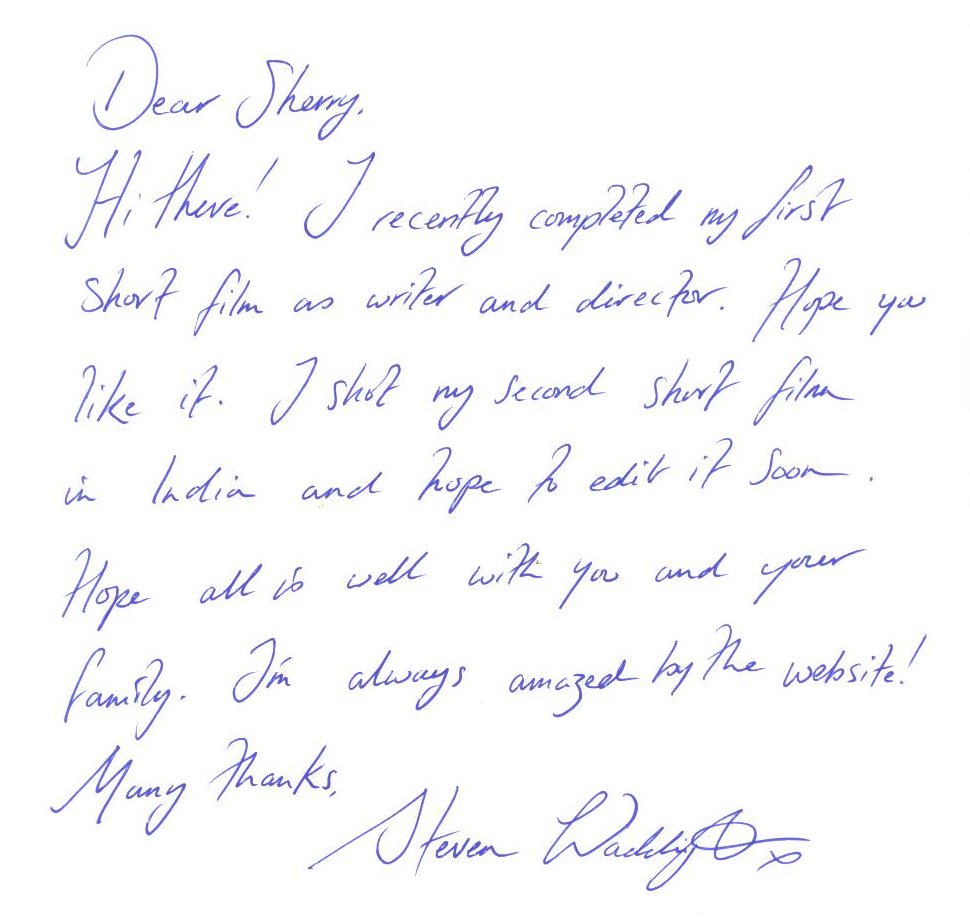 Dear Sherry,
Hi there! I recently completed my first
short film as writer and director. Hope you
like it. I shot my second short film
in India and hope to edit it soon.
Hope all is well with you and your
family. I'm always amazed by the website!
Many thanks,
Steven Waddington x